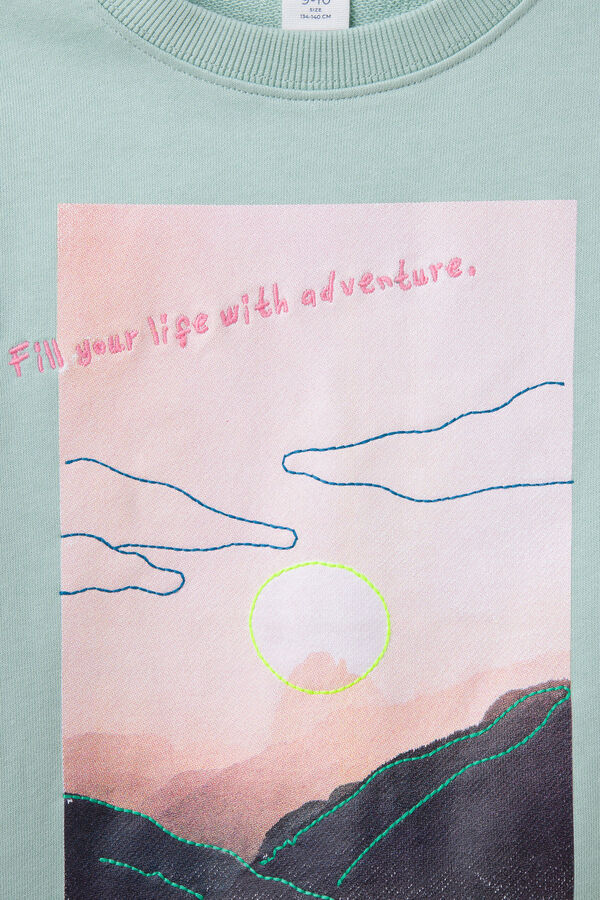 9-10
SIZE
134-140 CM
Fill your life with adventure.